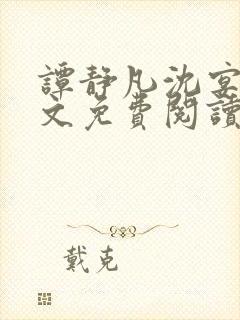 譚静凡沈宴
文免費閱讀
戴克